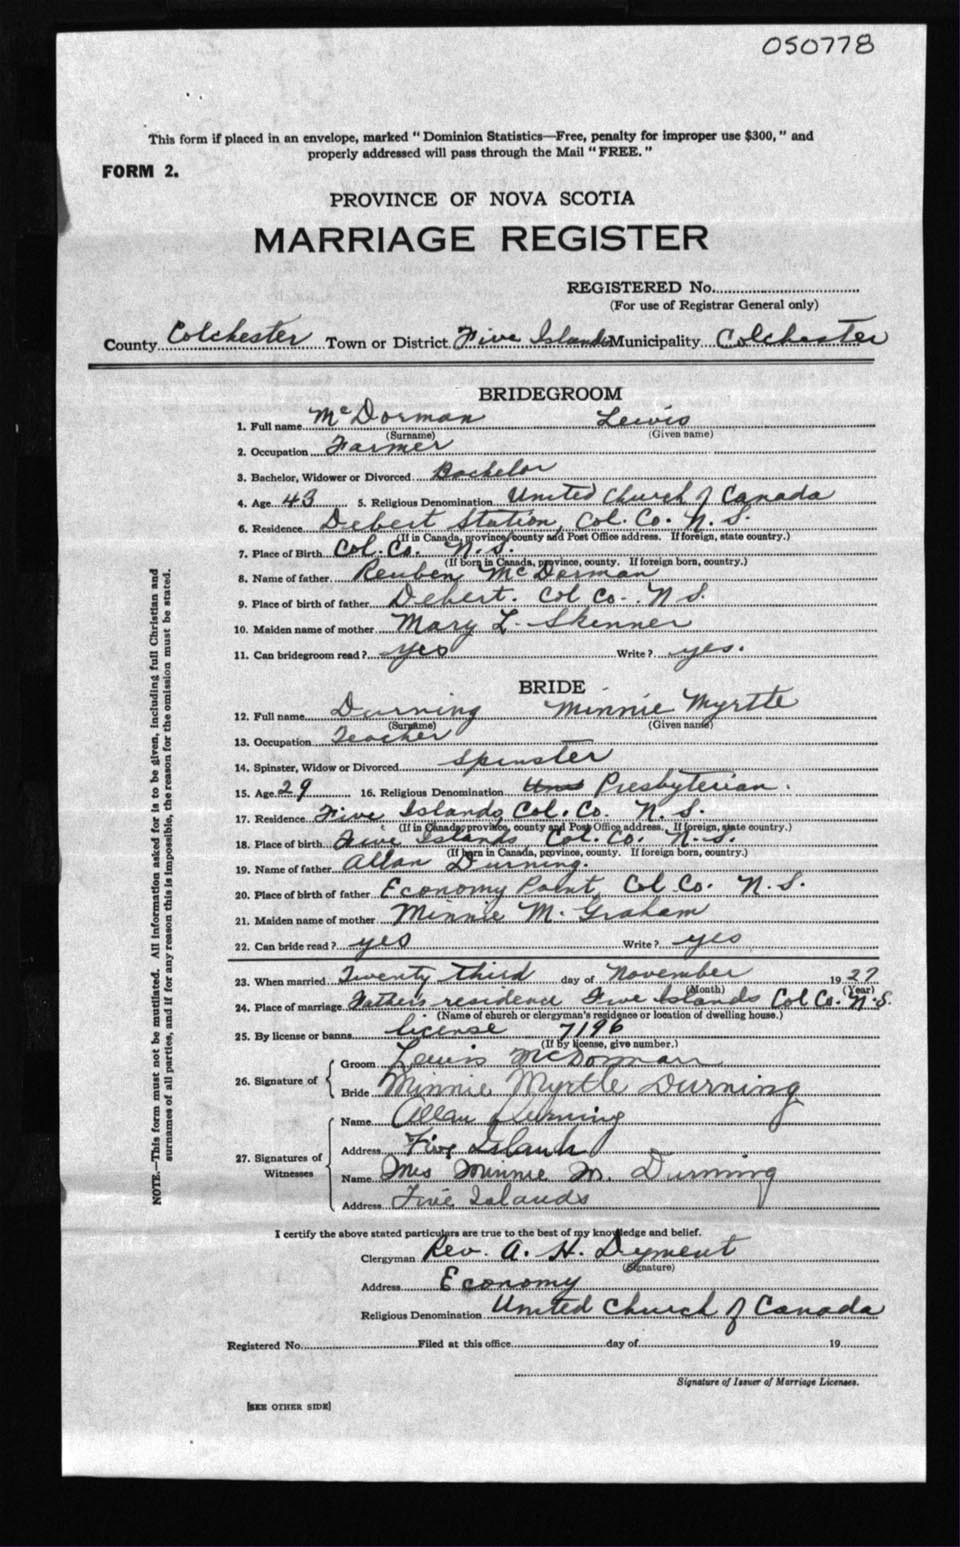 050778
This form if placed in an envelope, marked "Dominion Statistics—Free, penalty for improper use $300," and
properly addressed will pass through the Mail "FREE."
FORM 2.
PROVINCE OF NOVA SCOTIA
MARRIAGE REGISTER
REGISTERED No.
(For use of Registrar General only)
County Colchester Town or District Five Islands Municipality Colchester
BRIDEGROOM
1. Full name McDorman Lewis
(Surname) (Given name)
2. Occupation Farmer
3. Bachelor, Widower or Divorced Bachelor
4. Age 43 5. Religious Denomination United Church of Canada
6. Residence Debert Station, Col. Co. N. S.
(If in Canada, province, county and Post Office address. If foreign, state country.)
7. Place of Birth Col. Co. N. S.
(If born in Canada, province, county. If foreign born, country.)
8. Name of father Reuben McDorman
9. Place of birth of father Debert. Col Co. N S.
10. Maiden name of mother Mary L. Skinner
11. Can bridegroom read? yes Write? yes.
BRIDE
12. Full name Durning Minnie Myrtle
(Surname) (Given name)
13. Occupation Teacher
14. Spinster, Widow or Divorced Spinster
15. Age 29 16. Religious Denomination Presbyterian.
17. Residence Five Islands, Col. Co. N. S.
(If in Canada, province, county and Post Office address. If foreign, state country.)
18. Place of birth Five Islands Col. Co. N. S.
(If born in Canada, province, county. If foreign born, country.)
19. Name of father Allan Durning.
20. Place of birth of father Economy Point, Col Co. N. S.
21. Maiden name of mother Minnie M. Graham
22. Can bride read? yes Write? yes
23. When married Twenty third day of November 1927
(Month) (Year)
24. Place of marriage Fathers residence Five Islands Col Co. N. S.
(Name of church or clergyman's residence or location of dwelling house.)
25. By license or banns license 7196
(If by license, give number.)
26. Signature of
Groom Lewis McDorman
Bride Minnie Myrtle Durning
27. Signatures of Witnesses
Name Allan Durning
Address Five Islands
Name Mrs Minnie M. Durning
Address Five Islands
I certify the above stated particulars are true to the best of my knowledge and belief.
Clergyman Rev. A. H. Dyment
(Signature)
Address Economy
Religious Denomination United Church of Canada
Registered No. Filed at this office day of 19
Signature of Issuer of Marriage Licenses.
[SEE OTHER SIDE]
NOTE.—This form must not be mutilated. All information asked for is to be given, including full Christian and
surnames of all parties, and if for any reason this is impossible, the reason for the omission must be stated.